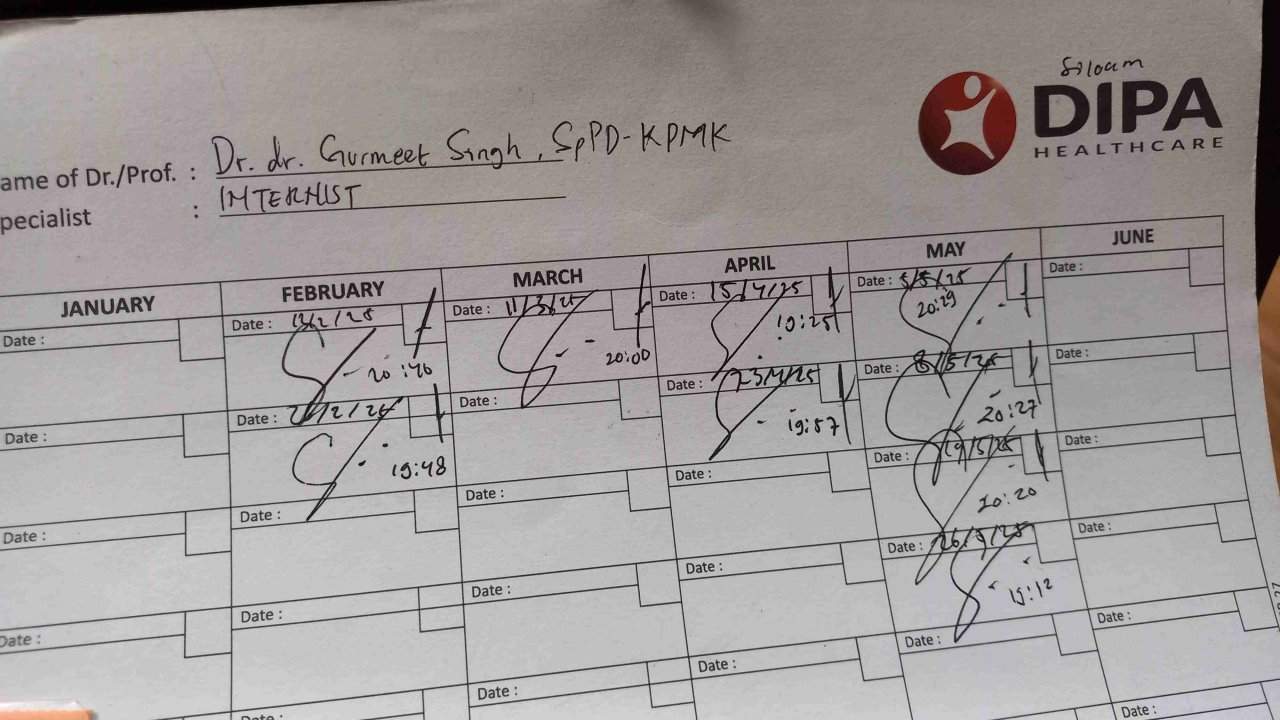 Siloam
DIPA
HEALTHCARE
ame of Dr./Prof. : Dr. dr. Gurmeet Singh, SpPD-KPMK
pecialist : INTERNIST
JANUARY FEBRUARY MARCH APRIL MAY JUNE
Date : Date : /2/25 Date : 11/3/25 Date : 15/4/25 Date : 5/5/25 Date :
20:40 20:00 19:25 20:29
Date : Date : /2/25 Date : Date : 23/4/25 Date : 8/5/25 Date :
19:48 19:57 20:27
Date : Date : Date : Date : Date : 19/5/25 Date :
20:20
Date : Date : Date : Date : Date : 26/5/25 Date :
19:12
Date : Date : Date : Date : Date :
Date :